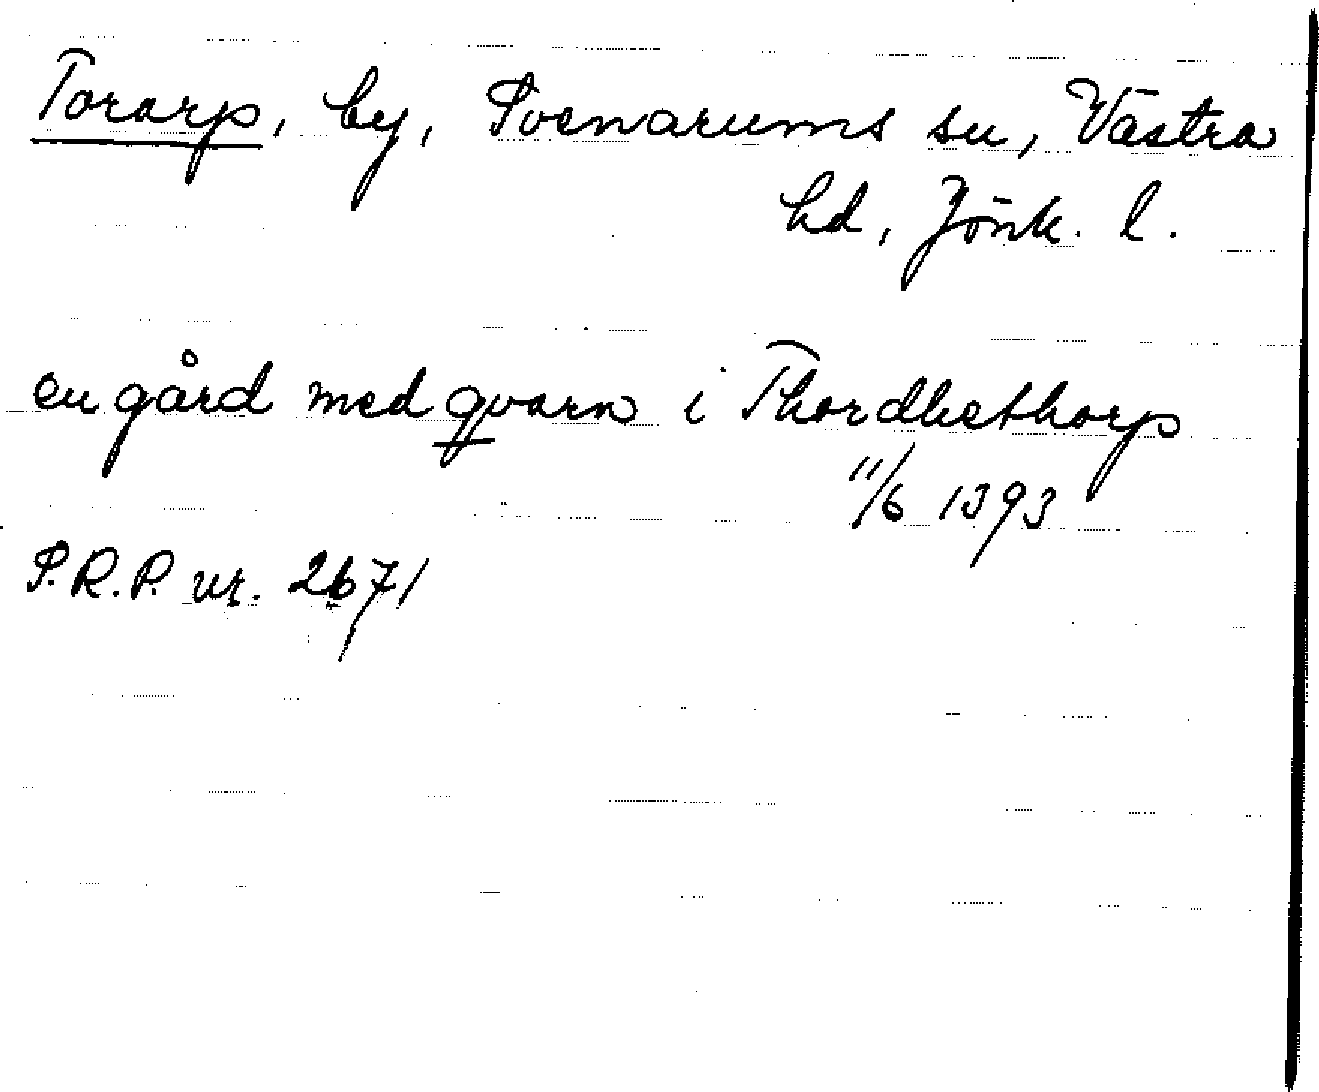 Torarp, by, Svenarums sn, Västra
hd, Jönk. l.
en gård med qvarn i Thordhethorp
11/6 1393
S.R.P. nr. 2671